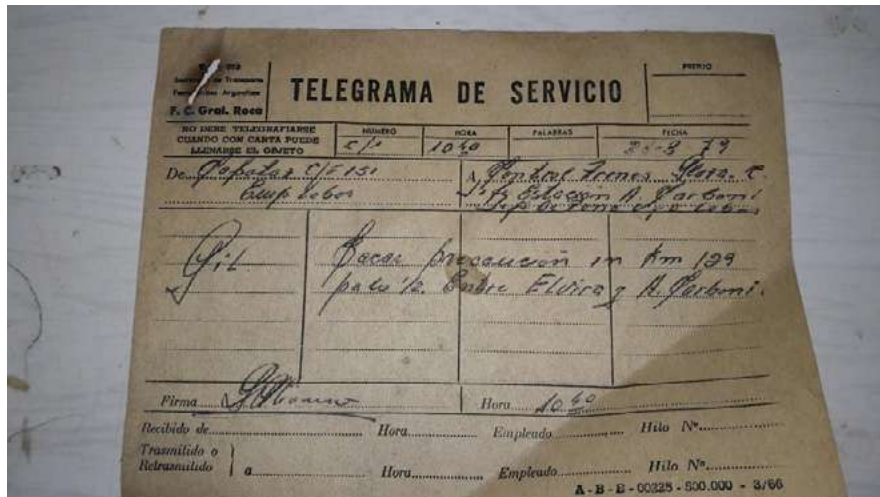 PREFIJO
de Transporte
Argentinos
F. C. Gral. Roca
TELEGRAMA DE SERVICIO
NO DEBE TELEGRAFIARSE
CUANDO CON CARTA PUEDE
LLENARSE EL OBJETO
NUMERO
HORA
PALABRAS
FECHA
10 40
79
De Capataz
A, Control Trenes
Lobos
Jefe Estación A. Carboni
Lobos
Gil
Sacar precaución en Km 129
palo 12. Entre Elvira y A. Carboni.
Firma
Hora 10 40
Recibido de
Hora
Empleado
Hilo Nº
Trasmitido o
Retrasmitido
a
Hora
Empleado
Hilo Nº
A-B-E-00225-500.000 - 3/66